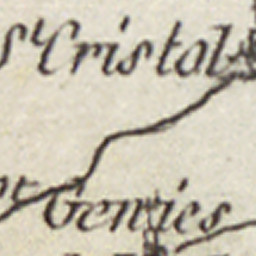 St Cristol
Genies